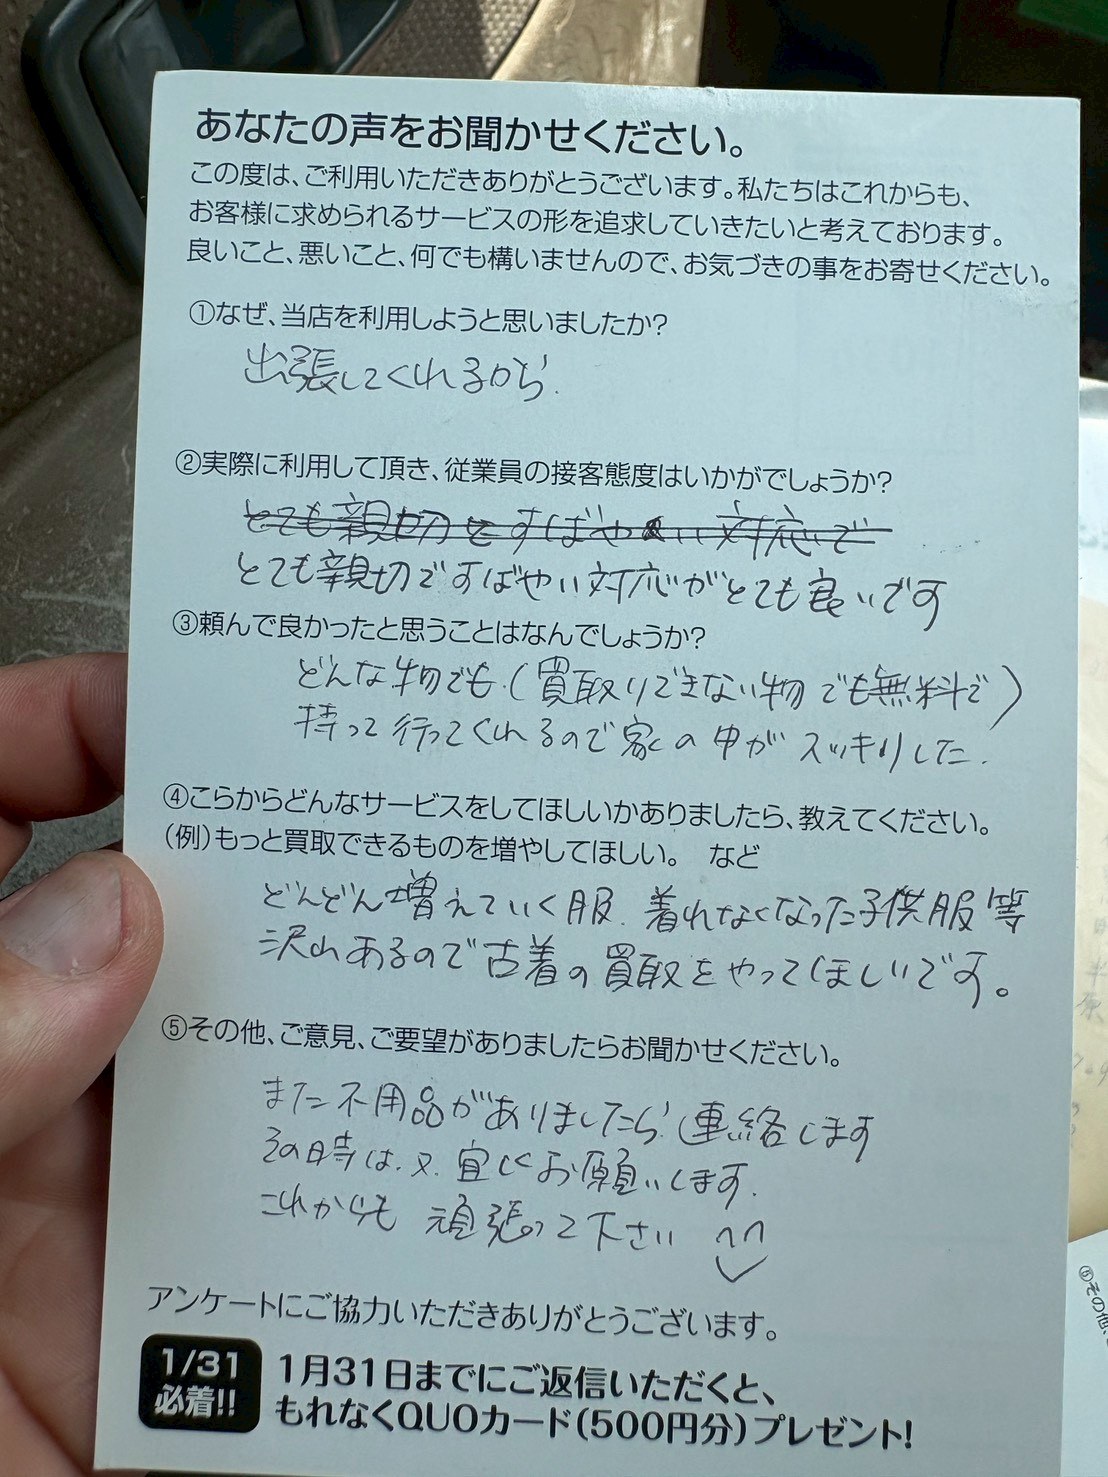 あなたの声をお聞かせください。
この度は、ご利用いただきありがとうございます。私たちはこれからも、
お客様に求められるサービスの形を追求していきたいと考えております。
良いこと、悪いこと、何でも構いませんので、お気づきの事をお寄せください。
①なぜ、当店を利用しようと思いましたか?
出張してくれるから.
②実際に利用して頂き、従業員の接客態度はいかがでしょうか?
とても親切で すばやい対応で
とても親切ですばやい対応がとても良いです
③頼んで良かったと思うことはなんでしょうか?
どんな物でも.(買取りできない物でも無料で)
持って行ってくれるので家の中がスッキリした.
④こらからどんなサービスをしてほしいかありましたら、教えてください。
(例)もっと買取できるものを増やしてほしい。 など
どんどん増えていく服.着れなくなった子供服等
沢山あるので古着の買取をやってほしいです。
⑤その他、ご意見、ご要望がありましたらお聞かせください。
また不用品がありましたら連絡します
その時は.又.宜しくお願いします.
これからも 頑張って下さい ^^
アンケートにご協力いただきありがとうございます。
1/31
必着!!
1月31日までにご返信いただくと、
もれなくQUOカード(500円分)プレゼント!
⑤その他、